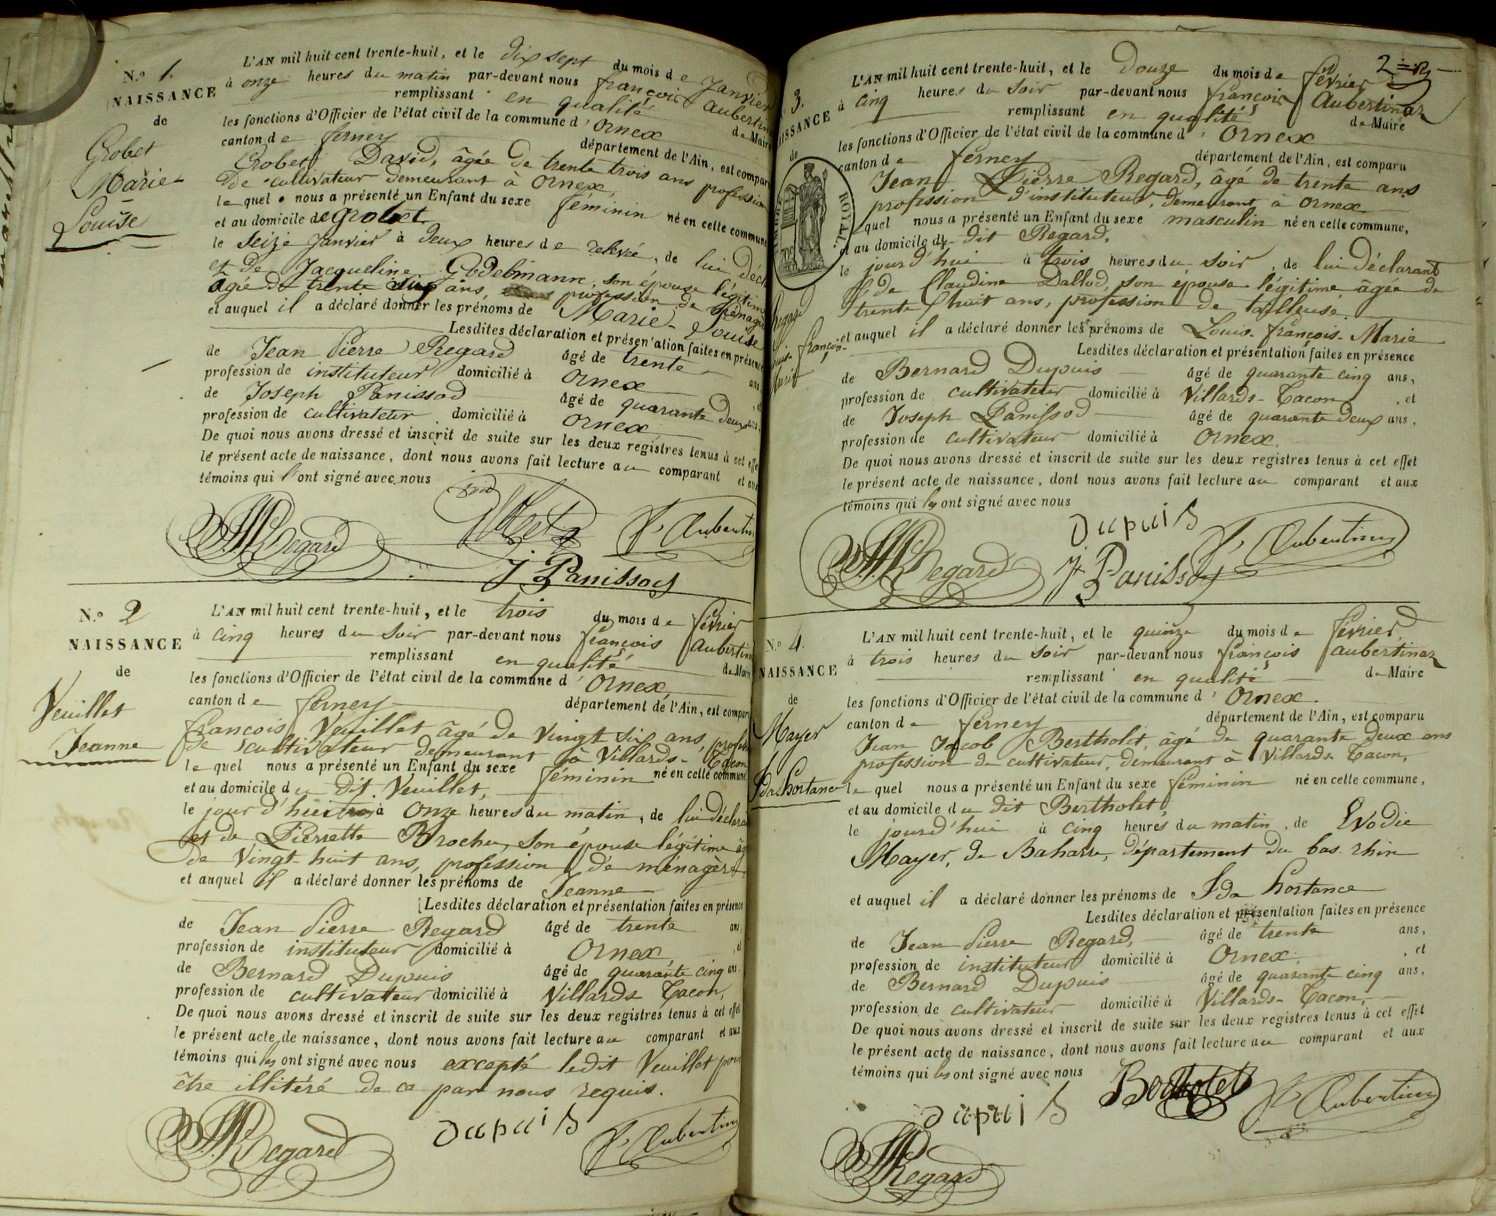 N.o 1.
NAISSANCE
de
Grobet
Marie-
Louise
L'AN mil huit cent trente-huit, et le dix sept du mois de Janvier
à onze heures du matin par-devant nous françois Aubertin
remplissant en qualité de Maire
les fonctions d'Officier de l'état civil de la commune d'Ornex
canton de ferney département de l'Ain, est comparu
Grobet David, âgée de trente trois ans profession
de cultivateur demeurant à Ornex,
lequel nous a présenté un Enfant du sexe féminin né en cette commune
et au domicile de Grobet
le seize Janvier à deux heures de relevée, de lui décl
et de Jacqueline Godelmann, son épouse légitime
âgée de trente six ans, profession de ménagè
et auquel il a déclaré donner les prénoms de Marie-Louise
Lesdites déclaration et présentation faites en présence
de Jean Pierre Regard âgé de trente ans
profession de instituteur domicilié à Ornex
de Joseph Panissod âgé de quarante deux ans,
profession de cultivateur domicilié à Ornex
De quoi nous avons dressé et inscrit de suite sur les deux registres tenus à cet effe
le présent acte de naissance, dont nous avons fait lecture au comparant et aux
témoins qui l'ont signé avec nous
Regard
f. Aubertin
J. Panissod
N.o 2
NAISSANCE
de
Veuillet
Jeanne
L'AN mil huit cent trente-huit, et le trois du mois de février
à cinq heures du soir par-devant nous françois Aubertin
remplissant en qualité de Maire
les fonctions d'Officier de l'état civil de la commune d'Ornex
canton de ferney département de l'Ain, est compar
françois Veuillet âgé de vingt six ans, profess
de cultivateur demeurant à Villards-Tacon
lequel nous a présenté un Enfant du sexe féminin né en cette commune
et au domicile du dit Veuillet,
le jour d'hui à onze heures du matin, de lui déclara
et de Pierrette Brochu, son épouse légitime âg
de vingt huit ans, profession de ménagère
et auquel il a déclaré donner les prénoms de Jeanne
Lesdites déclaration et présentation faites en présence
de Jean Pierre Regard âgé de trente ans,
profession de instituteur domicilié à Ornex, et
de Bernard Dupuis âgé de quarante cinq ans
profession de cultivateur domicilié à Villards Tacon,
De quoi nous avons dressé et inscrit de suite sur les deux registres tenus à cet effet
le présent acte de naissance, dont nous avons fait lecture au comparant et aux
témoins qui les ont signé avec nous excepté ledit Veuillet pour
être illitéré de ce par nous requis.
Regard
Dupuis
f. Aubertin
2
3.
NAISSANCE
de
Regard
Louis françois
Marie
L'AN mil huit cent trente-huit, et le douze du mois de février
à cinq heures du soir par-devant nous françois Aubertin
remplissant en qualité de Maire
les fonctions d'Officier de l'état civil de la commune d'Ornex
canton de ferney département de l'Ain, est comparu
Jean Pierre Regard, âgé de trente ans
profession d'instituteur, demeurant à Ornex
quel nous a présenté un Enfant du sexe masculin né en cette commune,
et au domicile du dit Regard,
le jourd'hui à trois heures du soir, de lui déclarant
& de Claudine Dallod, son épouse légitime âgée de
trente huit ans, profession de tailleuse
et auquel il a déclaré donner les prénoms de Louis-françois-Marie
Lesdites déclaration et présentation faites en présence
de Bernard Dupuis âgé de quarante cinq ans,
profession de cultivateur domicilié à Villards-Tacon, et
de Joseph Panissod âgé de quarante deux ans,
profession de cultivateur domicilié à Ornex.
De quoi nous avons dressé et inscrit de suite sur les deux registres tenus à cet effet
le présent acte de naissance, dont nous avons fait lecture au comparant et aux
témoins qui les ont signé avec nous
Dupuis
f. Aubertin
Regard
J. Panissod
N.o 4.
NAISSANCE
de
Mayer
Ida hortance
L'AN mil huit cent trente-huit, et le quinze du mois de février
à trois heures du soir par-devant nous françois Aubertin
remplissant en qualité de Maire
les fonctions d'Officier de l'état civil de la commune d'Ornex.
canton de ferney département de l'Ain, est comparu
Jean Jacob Bertholet, âgé de quarante deux ans
profession de cultivateur, demeurant à Villards Tacon,
lequel nous a présenté un Enfant du sexe féminin né en cette commune,
et au domicile du dit Bertholet,
le jourd'hui à cinq heures du matin, de Evodie
Mayer, de Baharre, département du bas-rhin
et auquel il a déclaré donner les prénoms de Ida hortance
Lesdites déclaration et présentation faites en présence
de Jean Pierre Regard, âgé de trente ans,
profession de instituteur domicilié à Ornex, et
de Bernard Dupuis âgé de quarante cinq ans,
profession de cultivateur domicilié à Villards-Tacon,
De quoi nous avons dressé et inscrit de suite sur les deux registres tenus à cet effet
le présent acte de naissance, dont nous avons fait lecture au comparant et aux
témoins qui les ont signé avec nous
Dupuis
Bertholet
f. Aubertin
Regard